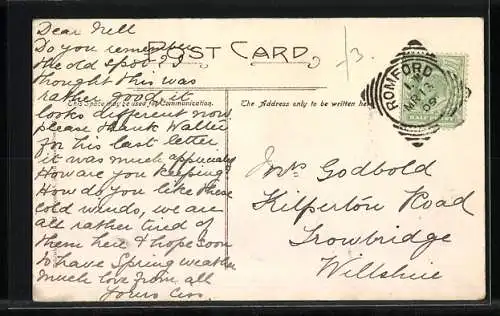 Dear Nell
Do you remember
the old spot? I
thought this was
rather good it
looks different now.
please thank Wallie
for his last letter
it was much appreciated
How are you keeping?
How do you like these
cold winds, we are
all rather tired of
them here & hope soon
to have Spring weather
Much love from all
Yours Ciss.
POST CARD.
This Space may be used for Communication.
The Address only to be written here
/3
ROMFORD
MR 13
09
HALFPENNY
Mrs Godbold
Hilperton Road
Trowbridge
Wiltshire